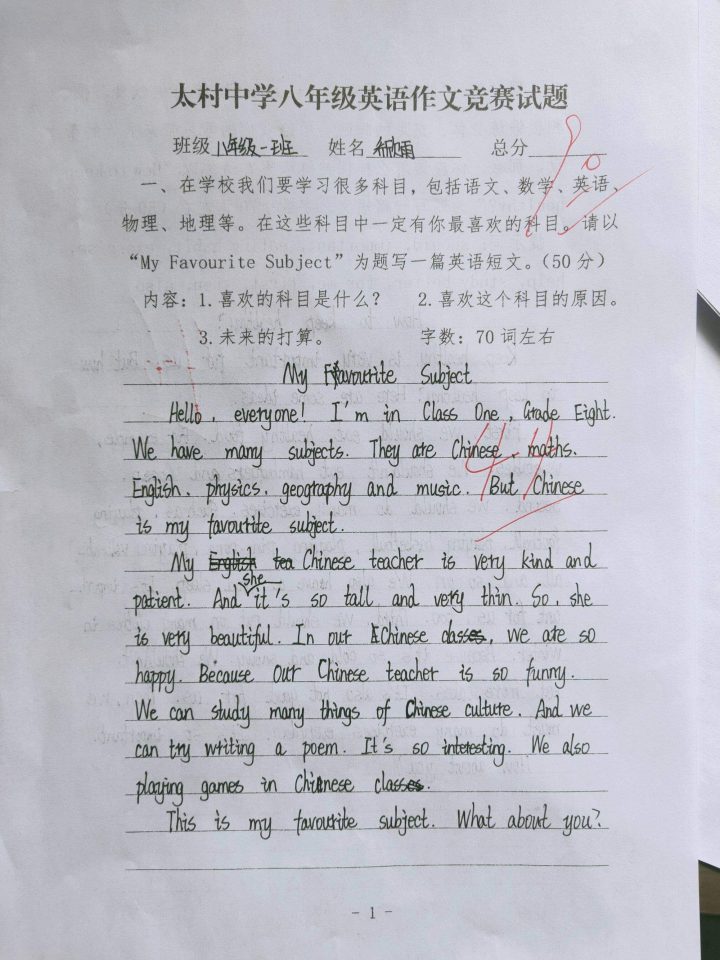 太村中学八年级英语作文竞赛试题
班级 八年级一班 姓名 总分 90
一、在学校我们要学习很多科目，包括语文、数学、英语、
物理、地理等。在这些科目中一定有你最喜欢的科目。请以
“My Favourite Subject”为题写一篇英语短文。（50分）
内容：1.喜欢的科目是什么？ 2.喜欢这个科目的原因。
3.未来的打算。 字数：70词左右
My Favourite Subject
Hello, everyone! I'm in Class One, Grade Eight.
We have many subjects. They are Chinese, maths.
English, physics, geography and music. But Chinese
is my favourite subject.
44
My English tea Chinese teacher is very kind and
she
patient. And it's so tall and very thin. So, she
is very beautiful. In our Chinese class, we are so
happy. Because our Chinese teacher is so funny.
We can study many things of Chinese culture. And we
can try writing a poem. It's so interesting. We also
playing games in Chinese class.
This is my favourite subject. What about you?
- 1 -